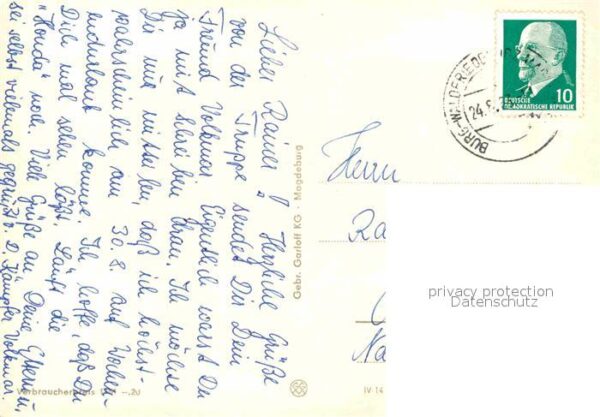 Lieber Rainer! Herzliche Grüße
von der Truppe sendet Dir Dein
Freund Volkmar. Eigentlich warst Du
ja mit Schreiben dran. Ich möchte
Dir nur mitteilen, daß ich höchst-
wahrscheinlich am 30. 8. auf Wochen-
endurlaub komme. Ich hoffe, daß Du
Dich mal sehen läßt. Läuft die
"Honda" noch. Viele Grüße an Deine Eltern u.
sei selbst vielmals gegrüßt v. D. Kämpfer Volkmar.
Verbraucherpreis -,20
Gebr. Garloff KG · Magdeburg
IV-14
Herrn
Ra
Na
DEUTSCHE
DEMOKRATISCHE REPUBLIK
10
BURG-WALDFRIEDEN
24.8.
privacy protection
Datenschutz